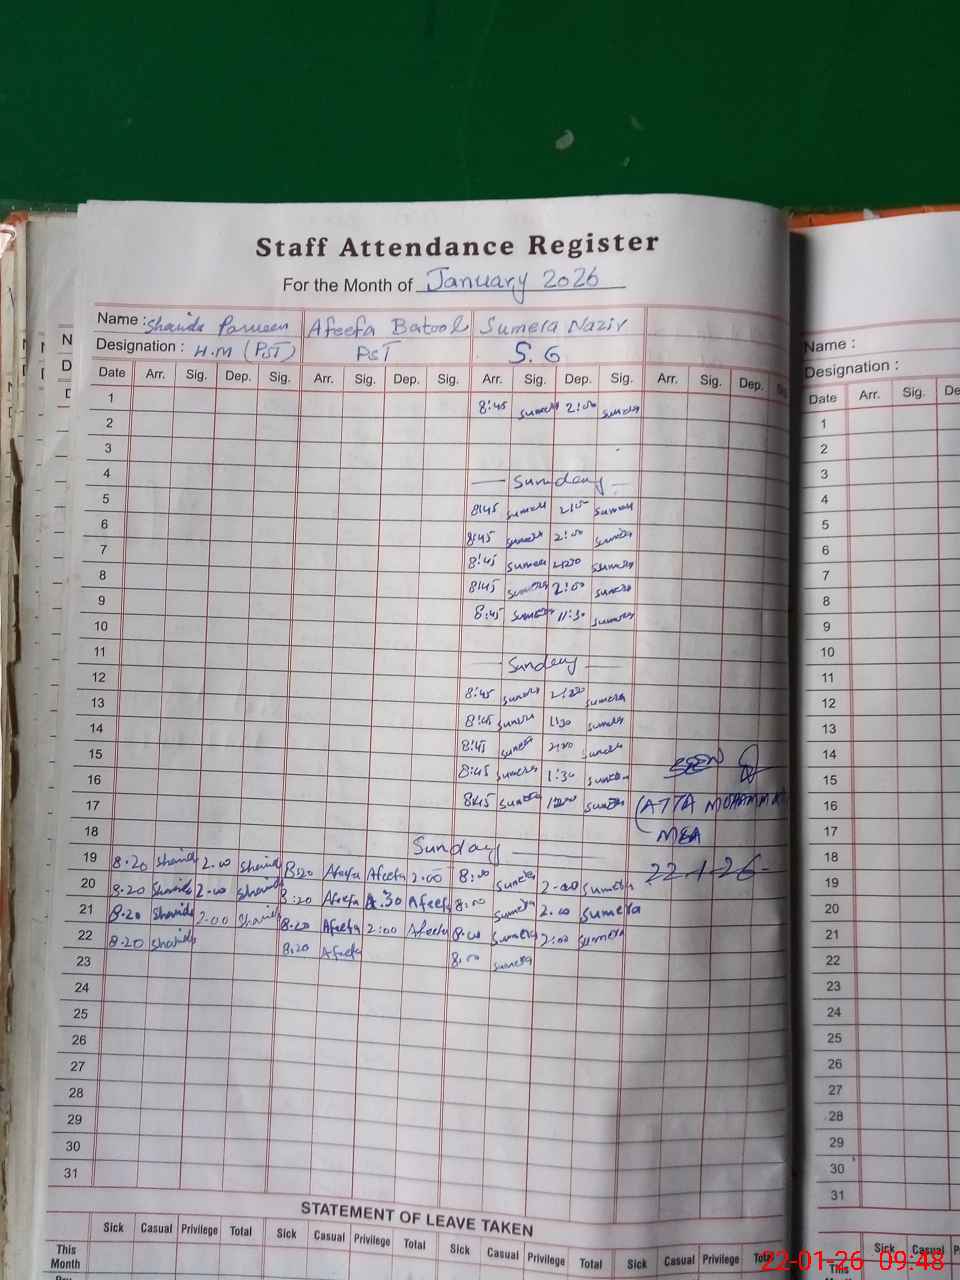 Staff Attendance Register
For the Month of January 2026
Name : Shahida Parveen Afeefa Batool Sumera Nazir
Designation : H.M (PST) PST S.G
Date Arr. Sig. Dep. Sig. Arr. Sig. Dep. Sig. Arr. Sig. Dep. Sig. Arr. Sig. Dep.
1 8:45 Sumera 2:00 Sumera
2
3
4 Sunday
5 8:45 Sumera Sumera
6 8:45 Sumera 2:00 Sumera
7 8:45 Sumera Sumera
8 8:45 Sumera 2:00 Sumera
9 8:45 Sumera 11:30 Sumera
10
11 Sunday
12 8:45 Sumera Sumera
13 8:45 Sumera Sumera
14 8:45 Sumera Sumera
15 8:45 Sumera 1:30 Sumera
16 8:45 Sumera Sumera
17
18 Sunday
19 8.20 Shahida 2.00 Shahida 8:20 Afeefa Afeefa 2.00 8:00 Sumera 2-00 Sumera
20 8.20 Shahida 2.00 Shahida 8:20 Afeefa Afeefa 8:00 Sumera 2.00 Sumera
21 8.20 Shahida 2.00 Shahida 8.20 Afeefa 2:00 Afeefa 8:00 Sumera 2:00 Sumera
22 8.20 Shahida 8.20 Afeefa 8:00 Sumera
23
24
25
26
27
28
29
30
31
SEEN
(ATTA MUHAMMAD
MEA
22-1-26
STATEMENT OF LEAVE TAKEN
Sick Casual Privilege Total Sick Casual Privilege Total Sick Casual Privilege Total Sick Casual Privilege Total
This
Month
Name :
Designation :
Date Arr. Sig.
1
2
3
4
5
6
7
8
9
10
11
12
13
14
15
16
17
18
19
20
21
22
23
24
25
26
27
28
29
30
31
Sick Casual
This
22-01-26 09:48